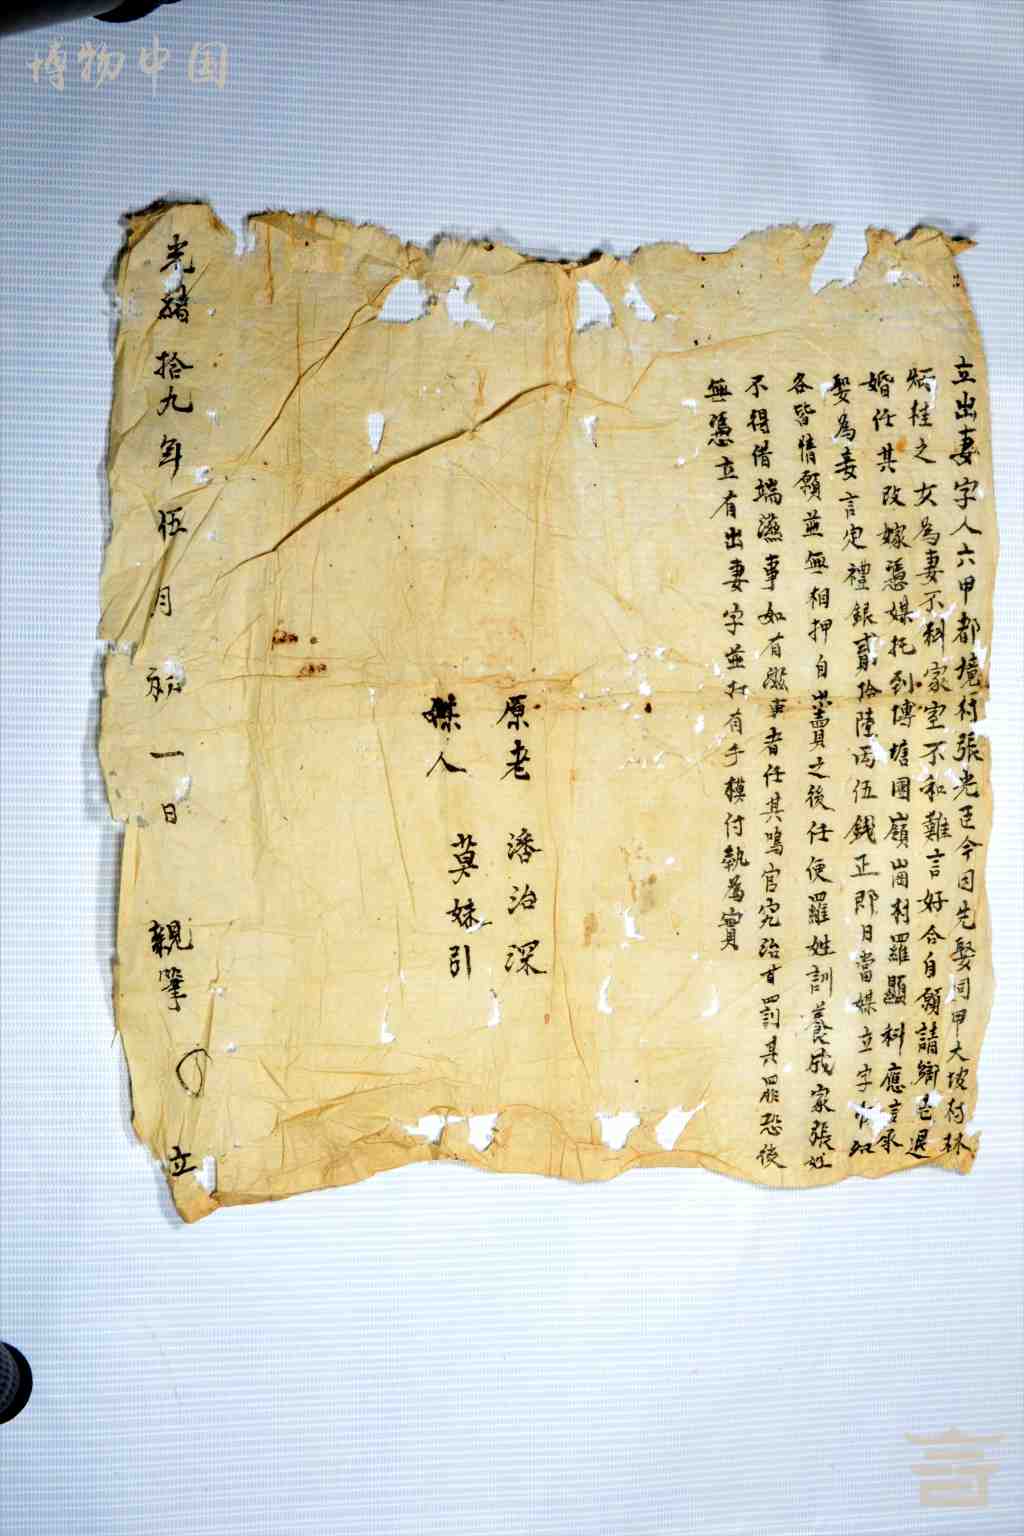 博物中国
立出妻字人六甲都境村張光臣今因先娶同甲大坡村林
炳桂之女為妻不料家室不和難言好合自願請鄉老退
婚任其改嫁憑媒托到博塘團嶺崗村羅顯科應言承
娶為妾言定禮銀貳拾陸両伍錢正即日當媒立字
各皆情願並無相押自賣之後任便羅姓訓養成家張姓
不得借端滋事如有滋事者任其鳴官究治甘罰其罪恐後
無憑立有出妻字並打有手模付執為實
原老 潘治深
媒人 莫妹引
光緒拾九年伍月初一日 親筆 立